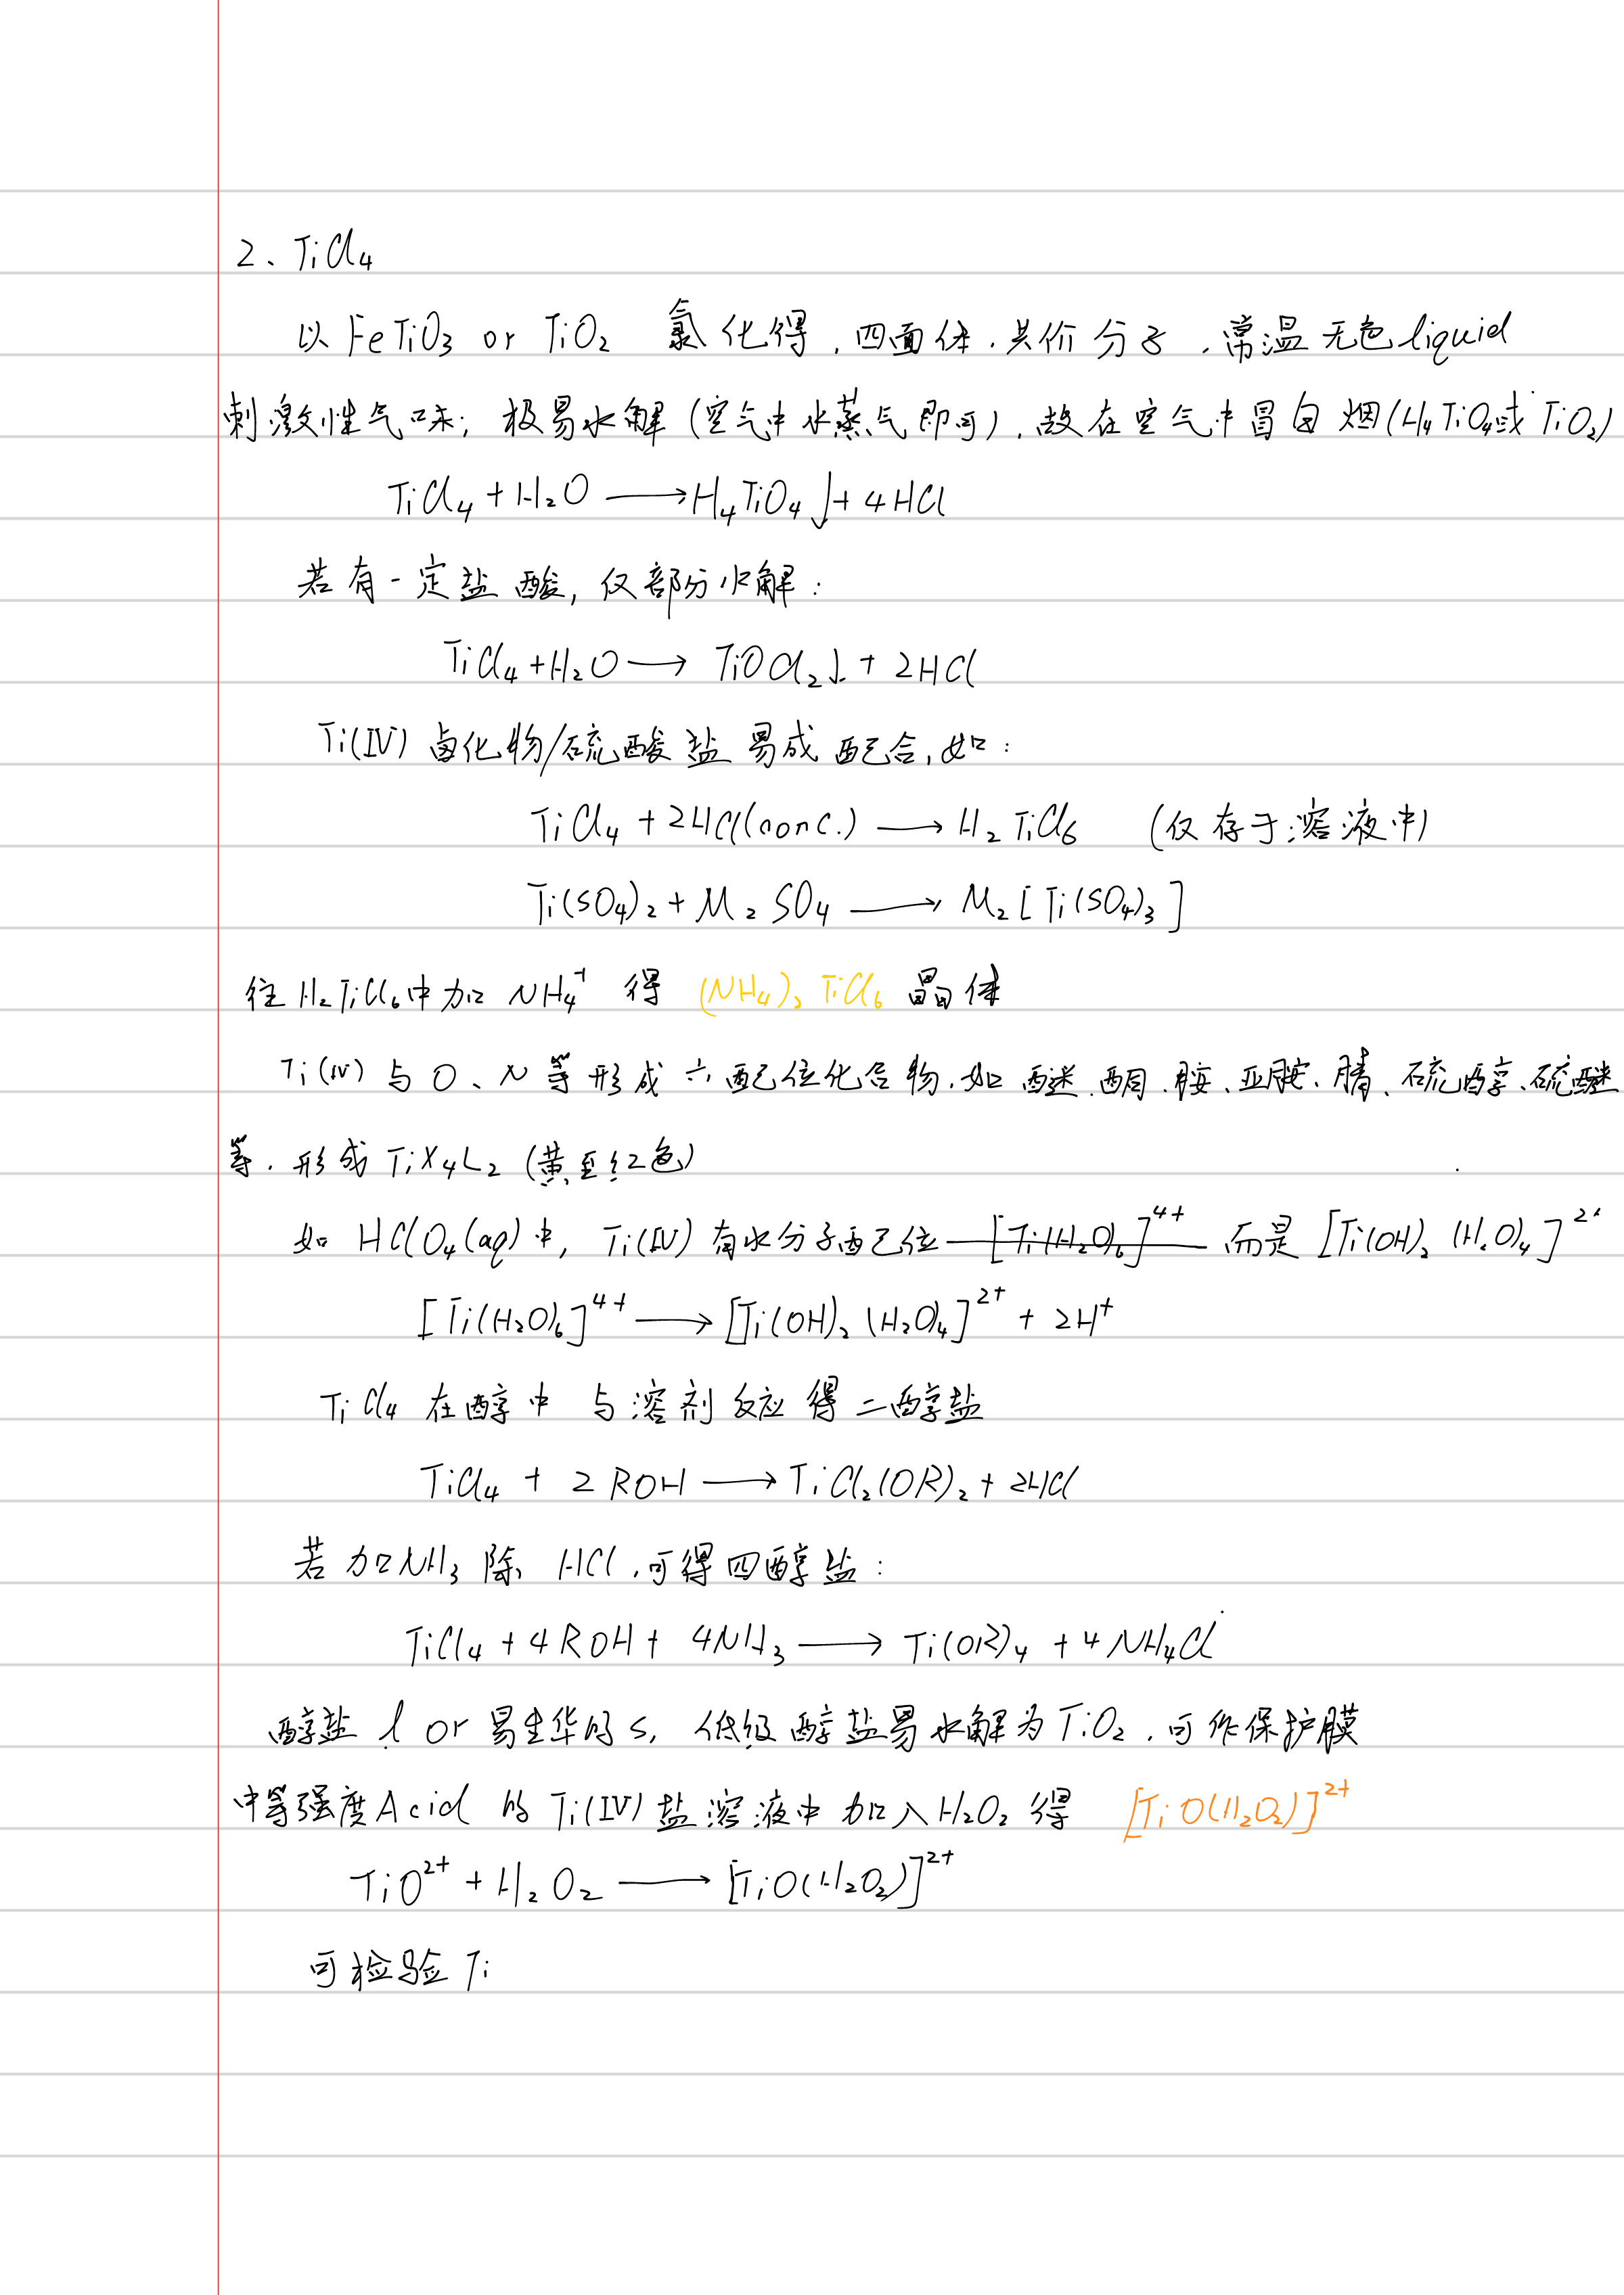 2、TiCl₄
以 FeTiO₃ or TiO₂ 氯化得，四面体，共价分子，常温无色liquid
刺激性气味；极易水解（空气中水蒸气即可），故在空气中冒白烟(H₄TiO₄或TiO₂)
TiCl₄ + H₂O ⟶ H₄TiO₄↓ + 4HCl
若有一定盐酸，仅部分水解：
TiCl₄ + H₂O ⟶ TiOCl₂↓ + 2HCl
Ti(IV) 卤化物/硫酸盐易成配合，如：
TiCl₄ + 2HCl(conc.) ⟶ H₂TiCl₆ （仅存于溶液中）
Ti(SO₄)₂ + M₂SO₄ ⟶ M₂[Ti(SO₄)₃]
往H₂TiCl₆中加 NH₄⁺ 得 (NH₄)₂TiCl₆ 晶体
Ti(IV) 与 O、N 等形成六配位化合物，如醚、酮、胺、亚胺、腈、硫醇、硫醚
等，形成 TiX₄L₂（黄至红色）
如 HClO₄(aq)中，Ti(IV) 有水分子配位 [Ti(H₂O)₆]⁴⁺ 而是 [Ti(OH)₂(H₂O)₄]²⁺
[Ti(H₂O)₆]⁴⁺ ⟶ [Ti(OH)₂(H₂O)₄]²⁺ + 2H⁺
TiCl₄ 在醇中 与溶剂反应得二醇盐
TiCl₄ + 2ROH ⟶ TiCl₂(OR)₂ + 2HCl
若加NH₃除 HCl，可得四醇盐：
TiCl₄ + 4ROH + 4NH₃ ⟶ Ti(OR)₄ + 4NH₄Cl
醇盐 l or 易生华的s，低级醇盐易水解为TiO₂，可作保护膜
中等强度Acid 的 Ti(IV)盐溶液中加入H₂O₂得 [TiO(H₂O₂)]²⁺
TiO²⁺ + H₂O₂ ⟶ [TiO(H₂O₂)]²⁺
可检验Ti